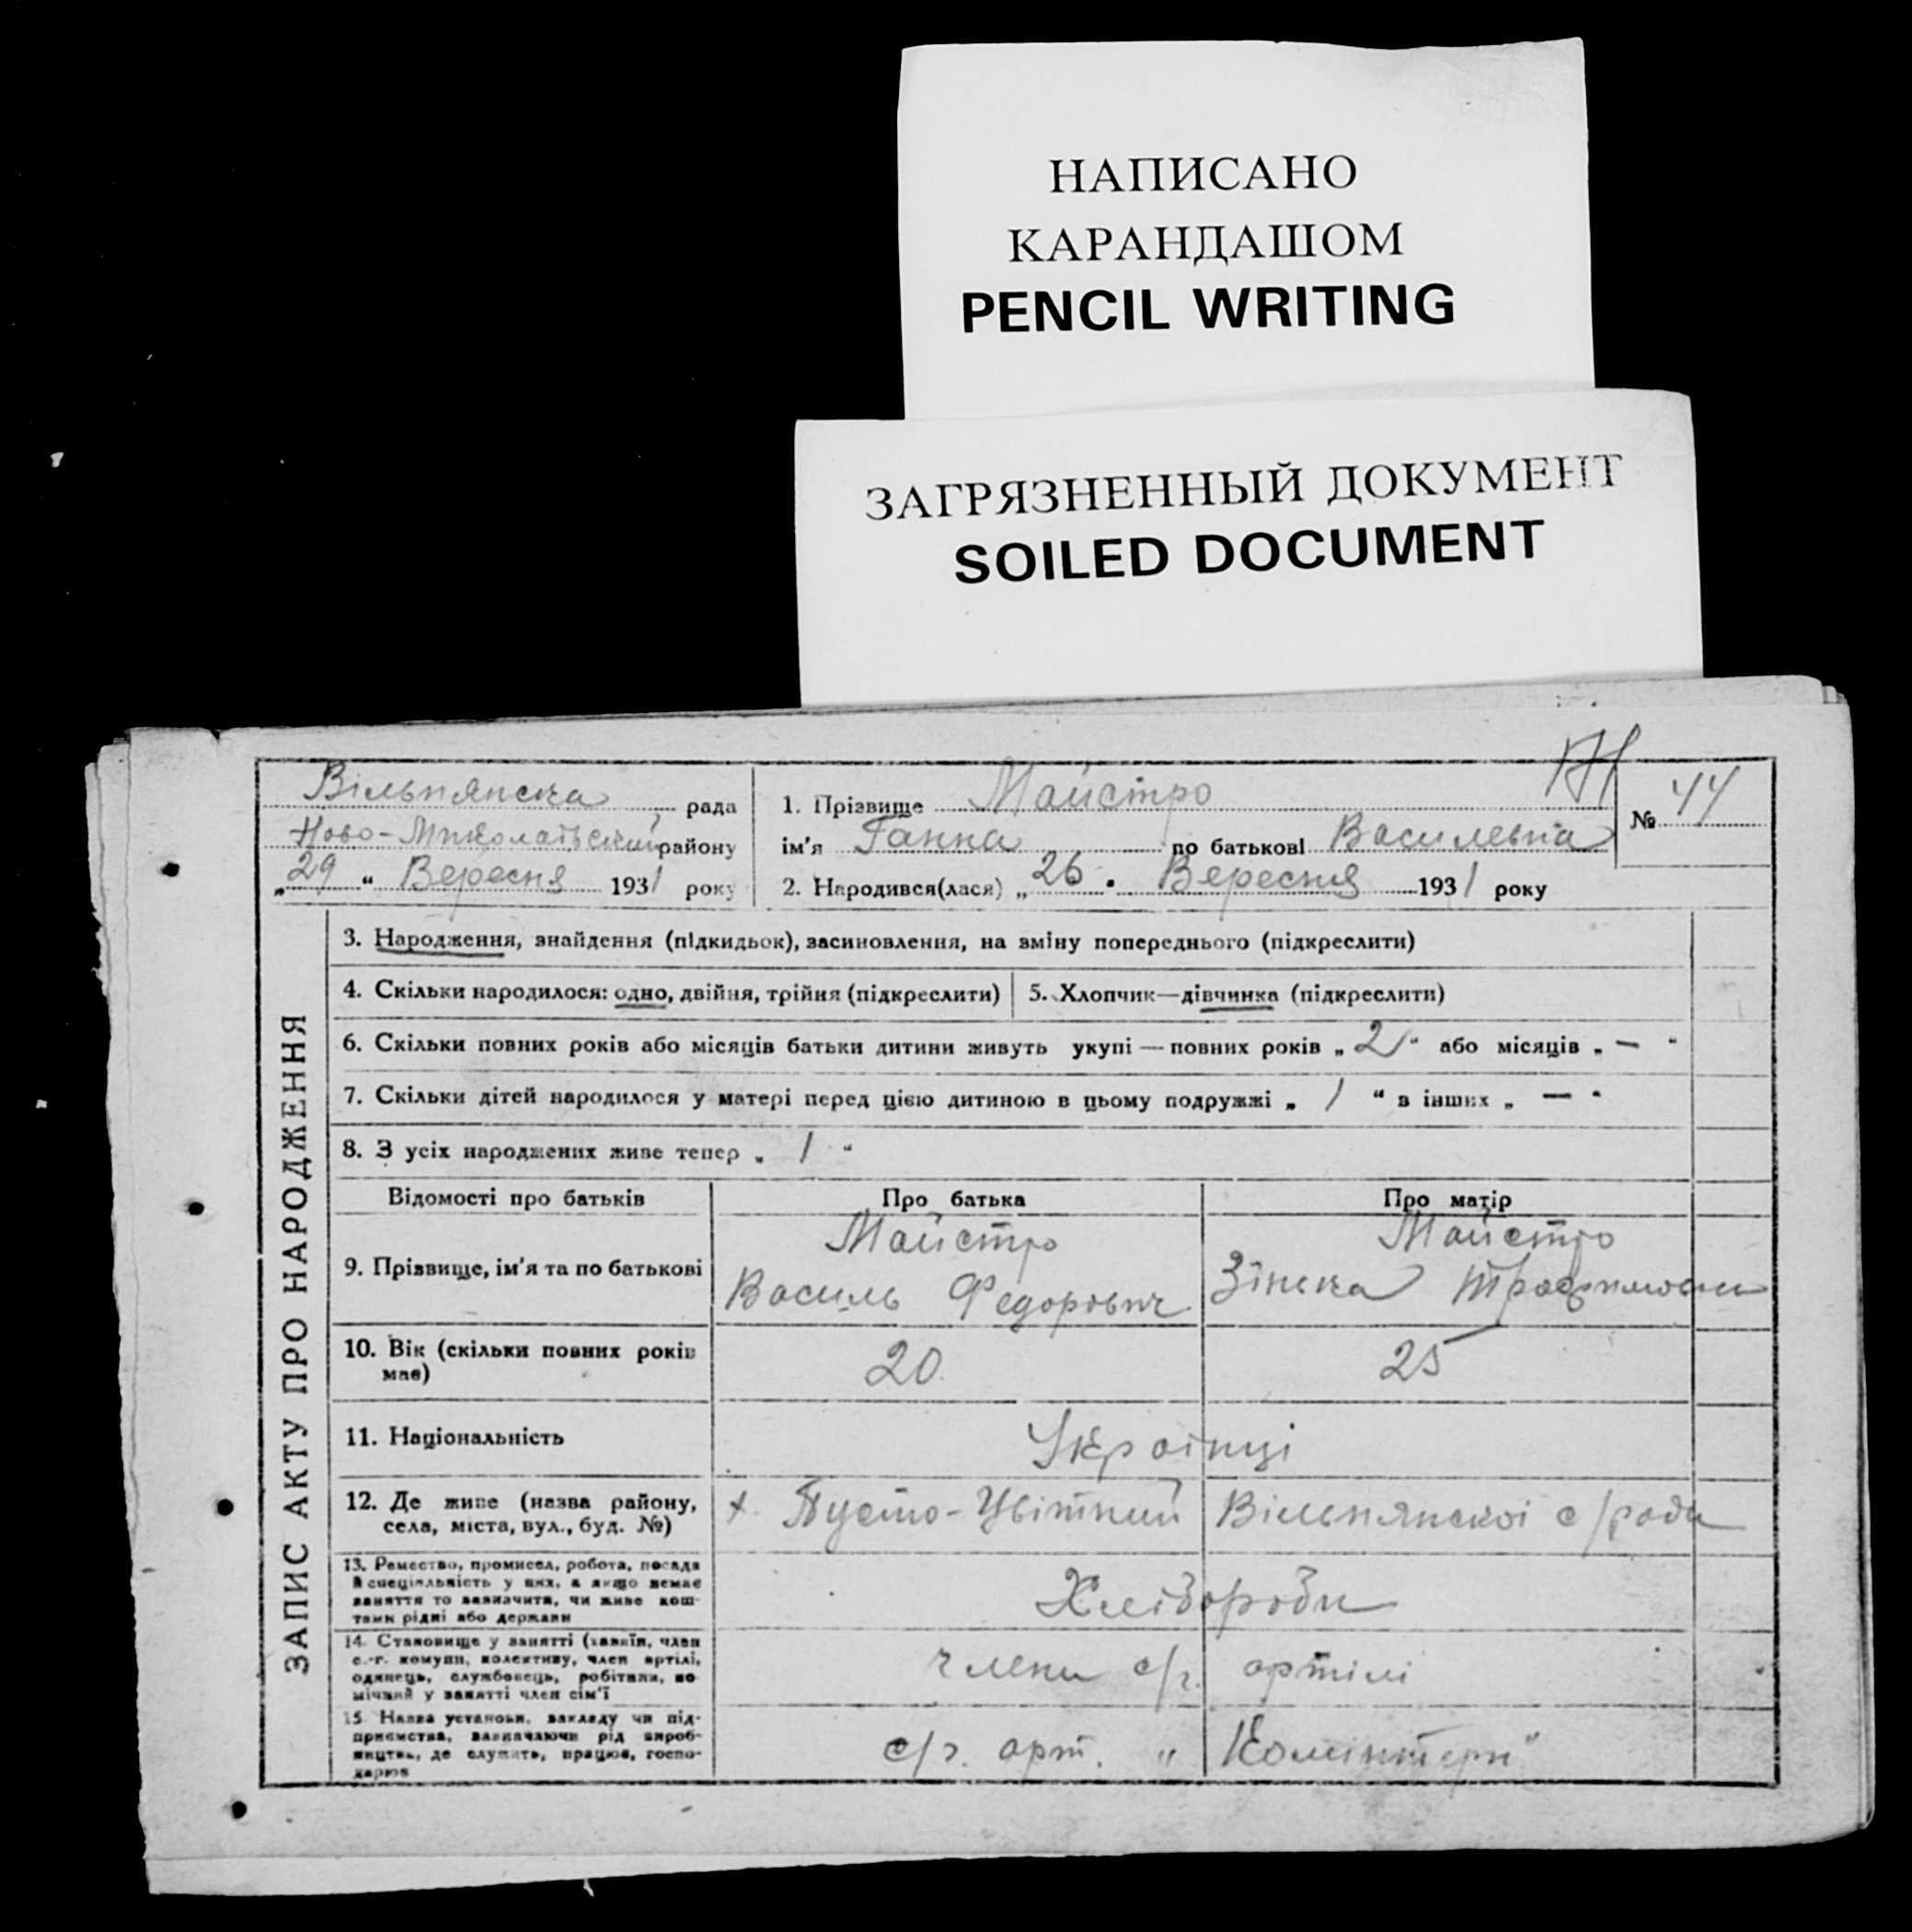 НАПИСАНО
КАРАНДАШОМ
PENCIL WRITING
ЗАГРЯЗНЕННЫЙ ДОКУМЕНТ
SOILED DOCUMENT
Вільнянска рада
Ново-Миколаївський району
„29“ Вересня 1931 року
1. Прізвище Майстро
ім'я Ганна по батькові Васильевна
№ 44
2. Народився(лася) „26. Вересня 1931 року
ЗАПИС АКТУ ПРО НАРОДЖЕННЯ
3. Народження, знайдення (підкидьок), засиновлення, на зміну попереднього (підкреслити)
4. Скільки народилося: одно, двійня, трійня (підкреслити)
5. Хлопчик—дівчинка (підкреслити)
6. Скільки повних років або місяців батьки дитини живуть укупі — повних років „2“ або місяців „—“
7. Скільки дітей народилося у матері перед цією дитиною в цьому подружжі „1“ в інших „—“
8. З усіх народжених живе тепер „1“
Відомості про батьків
Про батька
Про матір
9. Прізвище, ім'я та по батькові
Майстро
Василь Федорович
Майстро
Зінька
10. Вік (скільки повних років
має)
20
25
11. Національність
Українці
12. Де живе (назва району,
села, міста, вул., буд. №)
х. Пусто-Цвітний Вільнянскої с/ради
13. Ремество, промисел, робота, посада
й спеціяльність у них, а якщо немає
заняття то зазначити, чи живе кош-
тами рідні або держави
Хлібороби
14. Становище у занятті (хазяїн, член
с.-г. комуни, колективу, член артілі,
одинець, службовець, робітник, по-
мічний у занятті член сім'ї
члени с/г. артілі
15. Назва установи, закладу чи під-
приємства, зазначаючи рід вироб-
ництва, де служить, працює, госпо-
дарює
с/г. арт. „Комінтерн"